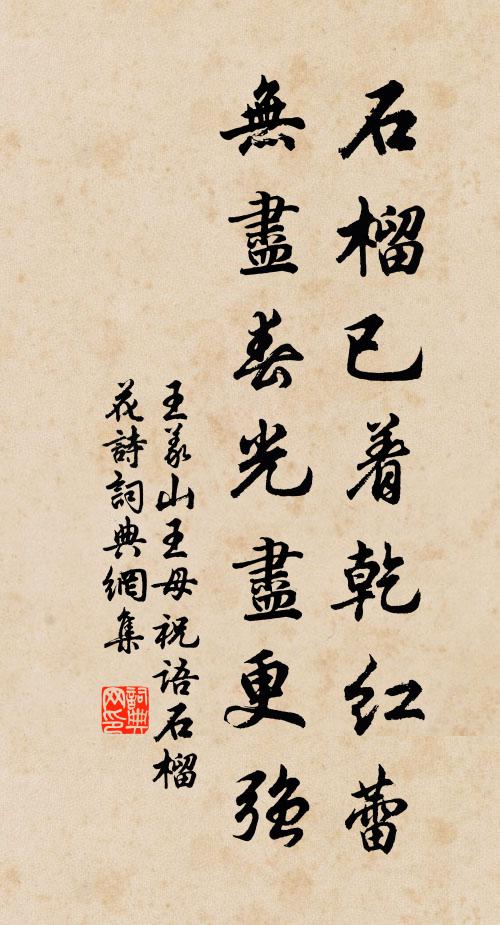 石榴已着乾红蕾
無盡春光盡更强
王义山王母祝语石榴
花詩詞典網集
詞典网印